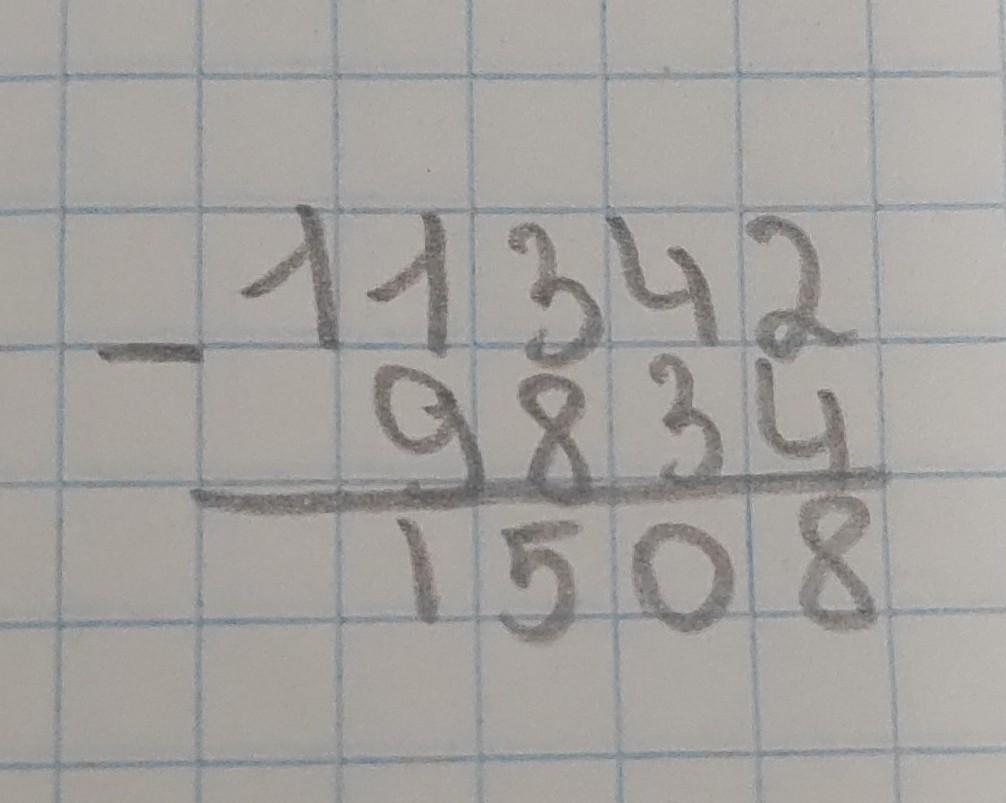 11342
-
9834
1508